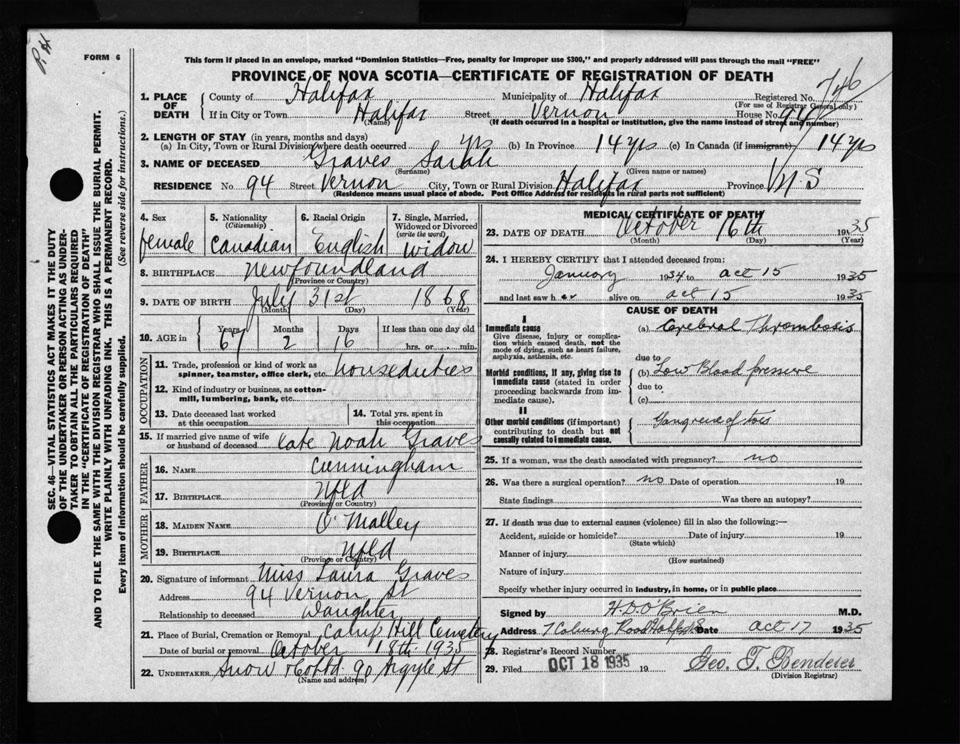 R.H.
FORM 6
This form if placed in an envelope, marked "Dominion Statistics—Free, penalty for improper use $300," and properly addressed will pass through the mail "FREE"
PROVINCE OF NOVA SCOTIA—CERTIFICATE OF REGISTRATION OF DEATH
1. PLACE OF DEATH County of Halifax Municipality of Halifax Registered No. 746
(For use of Registrar General only)
If in City or Town Halifax Street Vernon House No. 94
(Name) (If death occurred in a hospital or institution, give the name instead of street and number)
2. LENGTH OF STAY (in years, months and days)
(a) In City, Town or Rural Division where death occurred yrs (b) In Province 14 yrs (c) In Canada (if immigrant) 14 yrs
3. NAME OF DECEASED Graves Sarah
(Surname) (Given name or names)
RESIDENCE No. 94 Street Vernon City, Town or Rural Division Halifax Province N S
(Residence means usual place of abode. Post Office Address for residents in rural parts not sufficient)
SEC. 46—VITAL STATISTICS ACT MAKES IT THE DUTY
OF THE UNDERTAKER OR PERSON ACTING AS UNDER-
TAKER TO OBTAIN ALL THE PARTICULARS REQUIRED
IN THE "CERTIFICATE OF REGISTRATION OF DEATH"
AND TO FILE THE SAME WITH THE DIVISION REGISTRAR WHO SHALL ISSUE THE BURIAL PERMIT.
WRITE PLAINLY WITH UNFADING INK. THIS IS A PERMANENT RECORD.
Every item of information should be carefully supplied. (See reverse side for instructions.)
4. Sex female
5. Nationality (Citizenship) Canadian
6. Racial Origin English
7. Single, Married, Widowed or Divorced (write the word) widow
8. BIRTHPLACE Newfoundland
(Province or Country)
9. DATE OF BIRTH July 31st 1868
(Month) (Day) (Year)
10. AGE in Years 67 Months 2 Days 16 If less than one day old
hrs. or min.
OCCUPATION
11. Trade, profession or kind of work as spinner, teamster, office clerk, etc. houseduties
12. Kind of industry or business, as cotton-mill, lumbering, bank, etc.
13. Date deceased last worked at this occupation
14. Total yrs. spent in this occupation
15. If married give name of wife or husband of deceased late Noah Graves
FATHER
16. NAME Cunningham
17. BIRTHPLACE Nfld
(Province or Country)
MOTHER
18. MAIDEN NAME O'Malley
19. BIRTHPLACE Nfld
(Province or Country)
20. Signature of informant Miss Laura Graves
Address 94 Vernon St
Relationship to deceased Daughter
21. Place of Burial, Cremation or Removal Camp Hill Cemetery
Date of burial or removal October 18th 1935
22. UNDERTAKER Snow & Co Ltd 90 Argyle St
(Name and address)
MEDICAL CERTIFICATE OF DEATH
23. DATE OF DEATH October 16th 1935
(Month) (Day) (Year)
24. I HEREBY CERTIFY that I attended deceased from:
January 1934 to Oct 15 1935
and last saw h er alive on Oct 15 1935
CAUSE OF DEATH
I
Immediate cause
Give disease, injury or complication which caused death, not the mode of dying, such as heart failure, asphyxia, asthenia, etc.
(a) Cerebral Thrombosis
due to
Morbid conditions, if any, giving rise to immediate cause (stated in order proceeding backwards from immediate cause).
(b) Low Blood pressure
due to
(c)
II
Other morbid conditions (if important) contributing to death but not causally related to immediate cause.
Gangrene of toes
25. If a woman, was the death associated with pregnancy? no
26. Was there a surgical operation? no Date of operation 19
State findings Was there an autopsy?
27. If death was due to external causes (violence) fill in also the following:—
Accident, suicide or homicide? Date of injury 19
(State which)
Manner of injury
(How sustained)
Nature of injury
Specify whether injury occurred in industry, in home, or in public place
Signed by H.D. O'Brien M.D.
Address 7 Coburg Road Date Oct 17 1935
28. Registrar's Record Number
29. Filed OCT 18 1935 19 Geo. T. Bendeier
(Division Registrar)